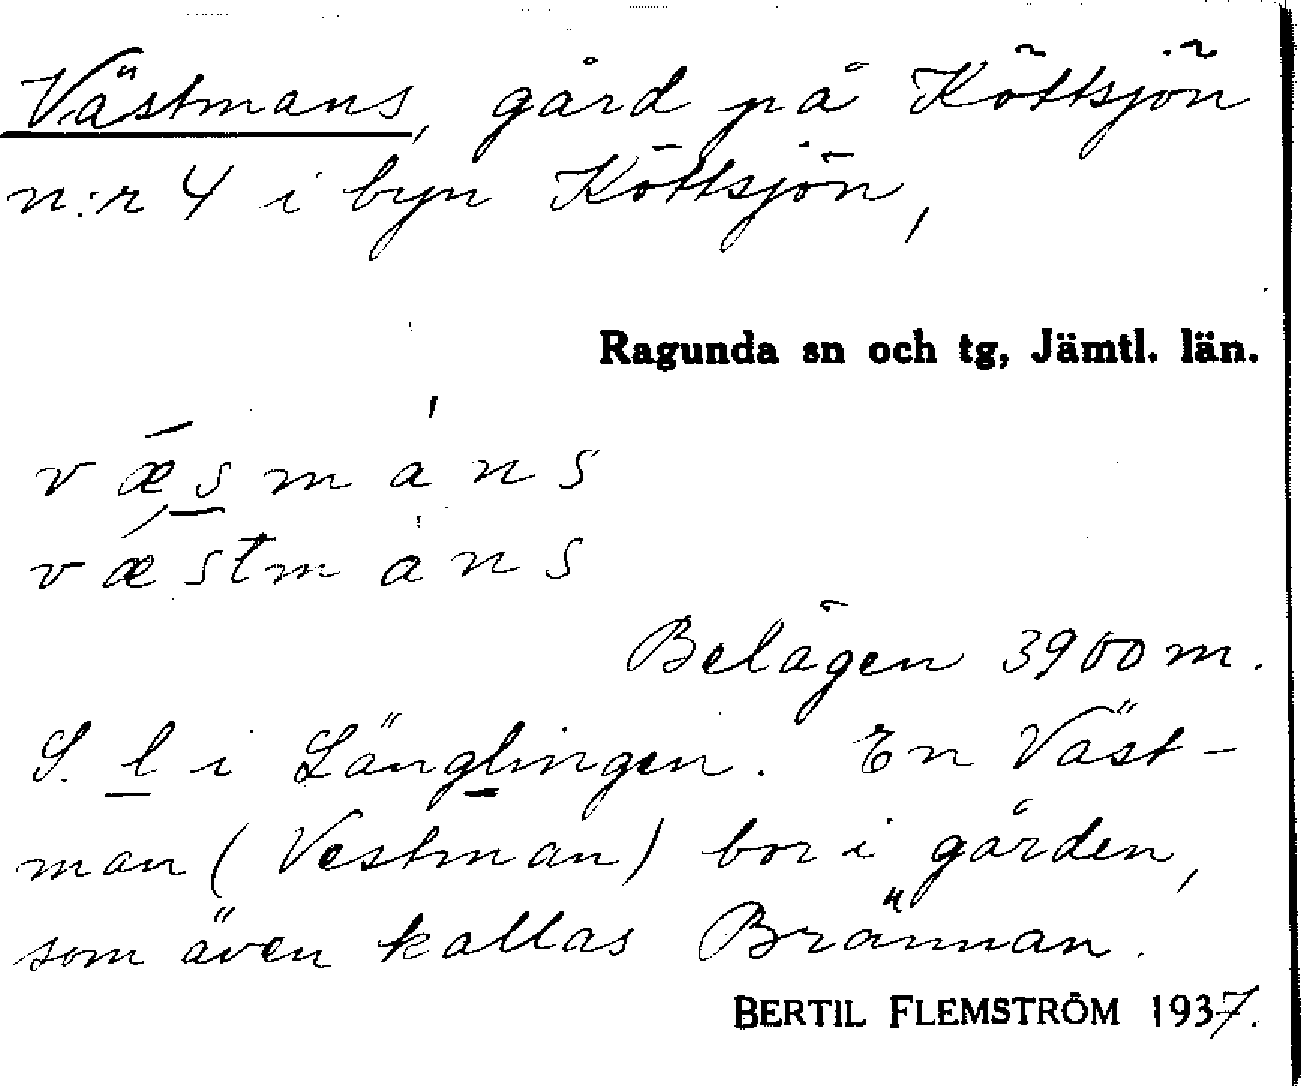 Västmans, gård på Köttsjön
n:r 4 i byn Köttsjön,
Ragunda sn och tg, Jämtl. län.
vǽsmàns
vǽstmàns
Belägen 3900 m.
S. l i Länglingen. En Väst-
man (Vestman) bor i gården,
som även kallas Brännan.
BERTIL FLEMSTRÖM 1937.